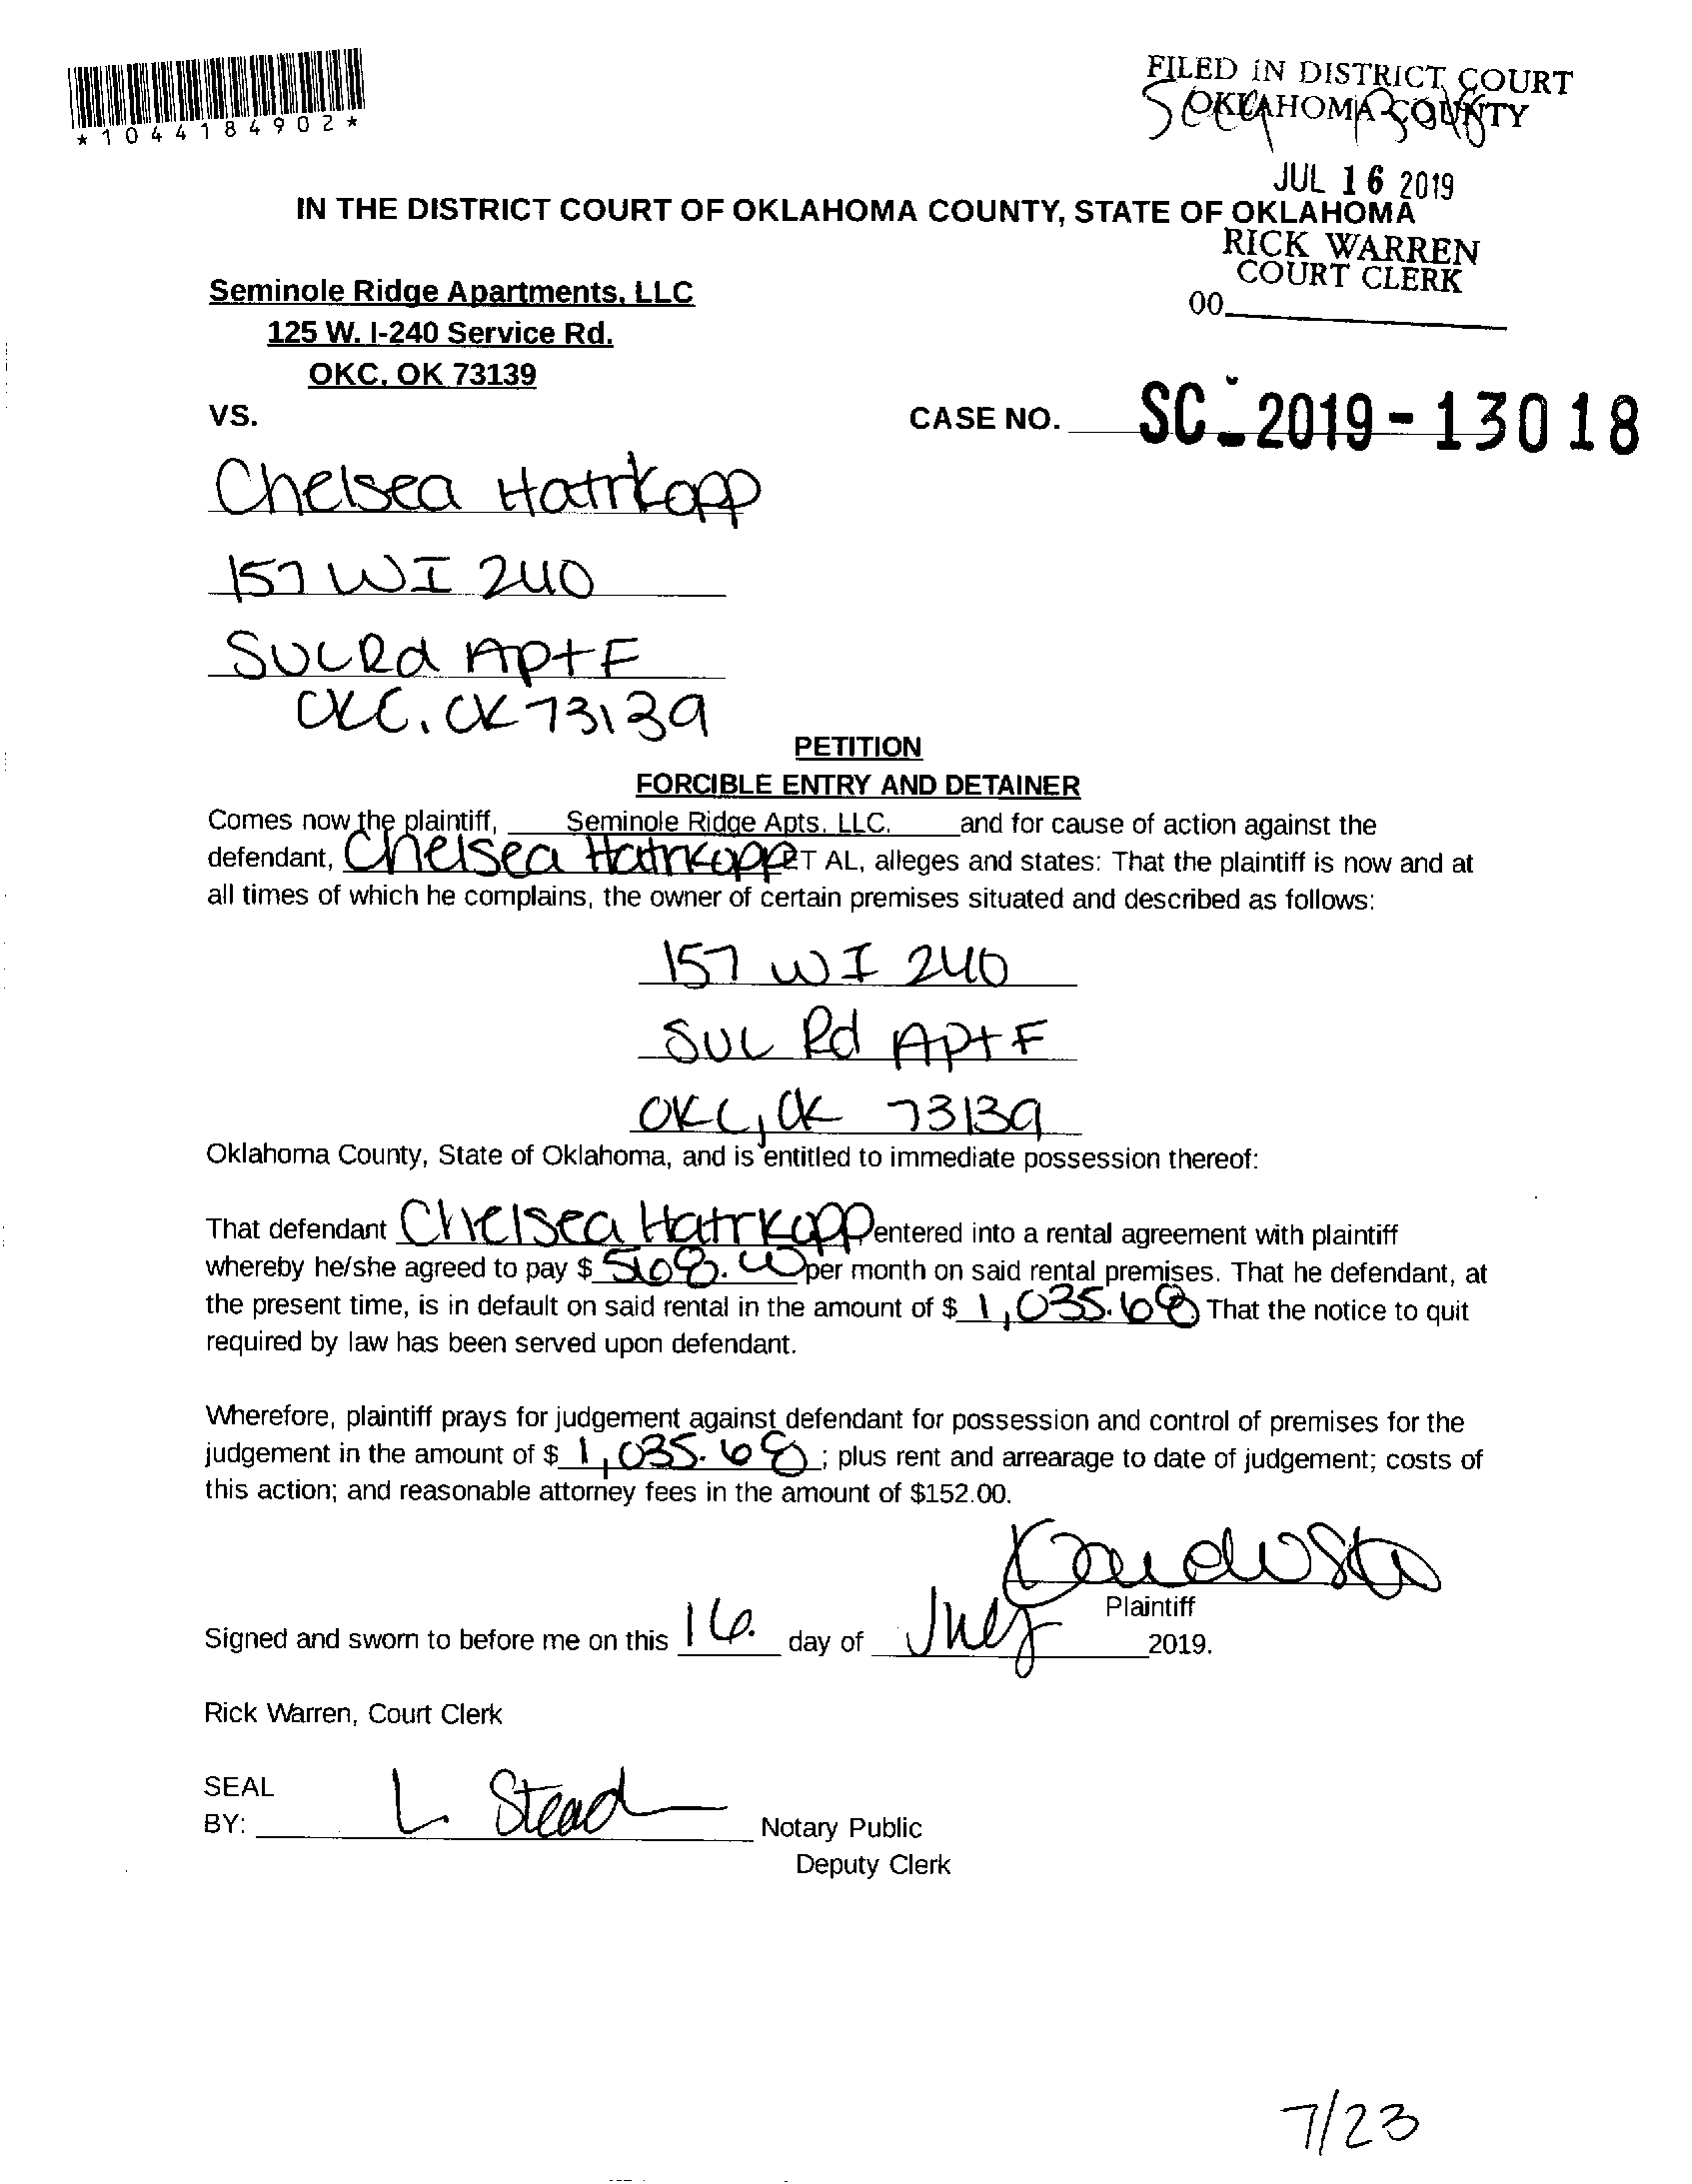 *1044184902*
FILED IN DISTRICT COURT
OKLAHOMA COUNTY
JUL 16 2019
IN THE DISTRICT COURT OF OKLAHOMA COUNTY, STATE OF OKLAHOMA
RICK WARREN
COURT CLERK
00
Seminole Ridge Apartments, LLC
125 W. I-240 Service Rd.
OKC, OK 73139
VS.
CASE NO. SC-2019-13018
Chelsea Hatrkopp
157 W I 240
SVC Rd Apt F
OKC, OK 73139
PETITION
FORCIBLE ENTRY AND DETAINER
Comes now the plaintiff, Seminole Ridge Apts, LLC. and for cause of action against the
defendant, Chelsea Hatrkopp ET AL, alleges and states: That the plaintiff is now and at
all times of which he complains, the owner of certain premises situated and described as follows:
157 W I 240
SVC Rd Apt F
OKC, OK 73139
Oklahoma County, State of Oklahoma, and is entitled to immediate possession thereof:
That defendant Chelsea Hatrkopp entered into a rental agreement with plaintiff
whereby he/she agreed to pay $ per month on said rental premises. That he defendant, at
the present time, is in default on said rental in the amount of $ 1,035.68 That the notice to quit
required by law has been served upon defendant.
Wherefore, plaintiff prays for judgement against defendant for possession and control of premises for the
judgement in the amount of $ 1,035.68; plus rent and arrearage to date of judgement; costs of
this action; and reasonable attorney fees in the amount of $152.00.
Plaintiff
Signed and sworn to before me on this 16. day of July 2019.
Rick Warren, Court Clerk
SEAL
BY: L Stead Notary Public
Deputy Clerk
7/23